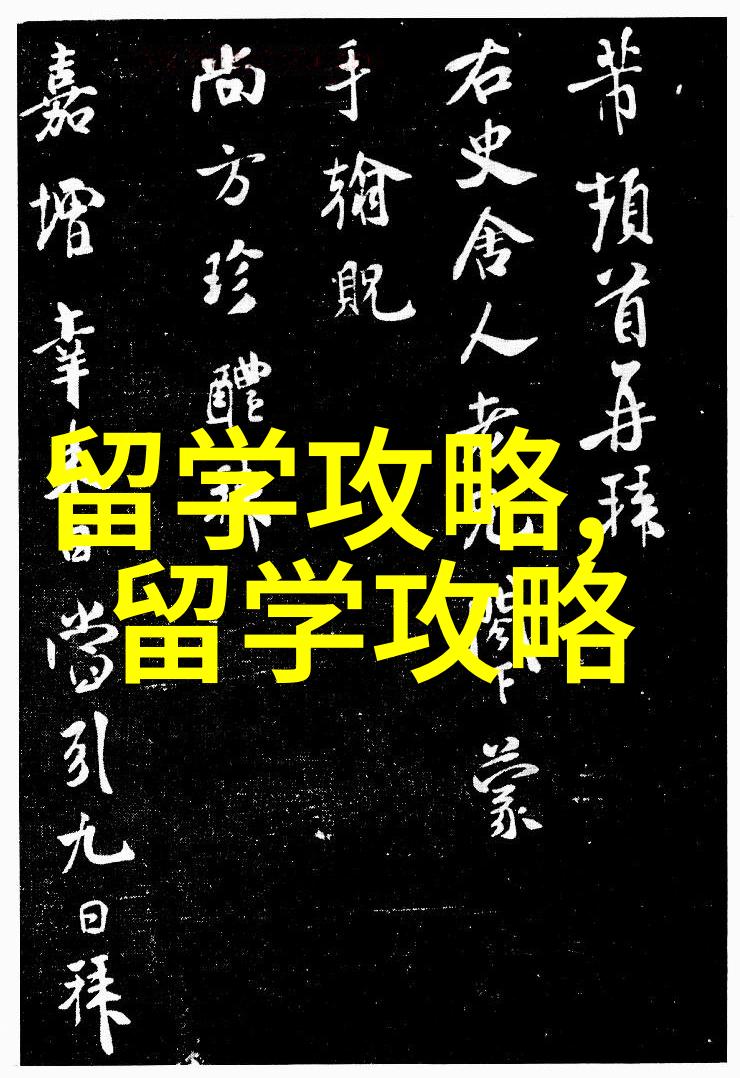 芾頓首再拜
右史舍人老兄閣下蒙
手翰貺
尚方珍醴
嘉增幸日當引九日拜
留学攻略,
留学攻略